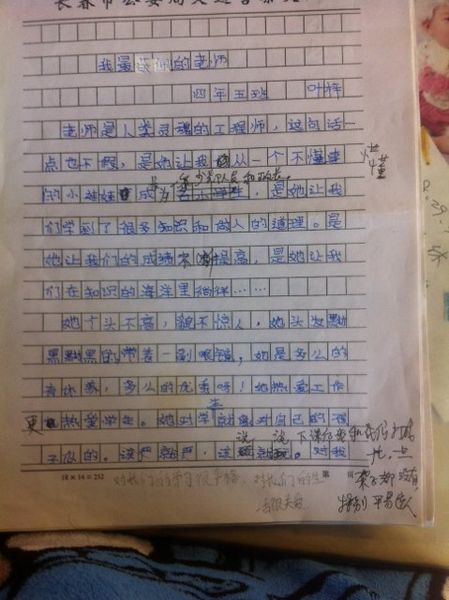 我最敬佩的老师
四年五班 叶梓
老师是人类灵魂的工程师，这句话一
点也不假，是她让我从一个不懂事
懂
的小娃娃成为 少先队员和班长
，是她让我
们学到了很多知识和做人的道理。是
她让我们的成绩不断提高，是她让我
们在知识的海洋里徜徉……
她个头不高，貌不惊人，她头发黝
黑黝黑的带着一副眼镜，她是多么的
有休养，多么的优秀呀！她热爱工作
生
更热爱学生。她对学就像对自己的孩
说 说 下课后
子似的。该严就严，该就。对我
18×14=252
对我们的学习很严格，对我们的生
活很关爱
特别平易近人